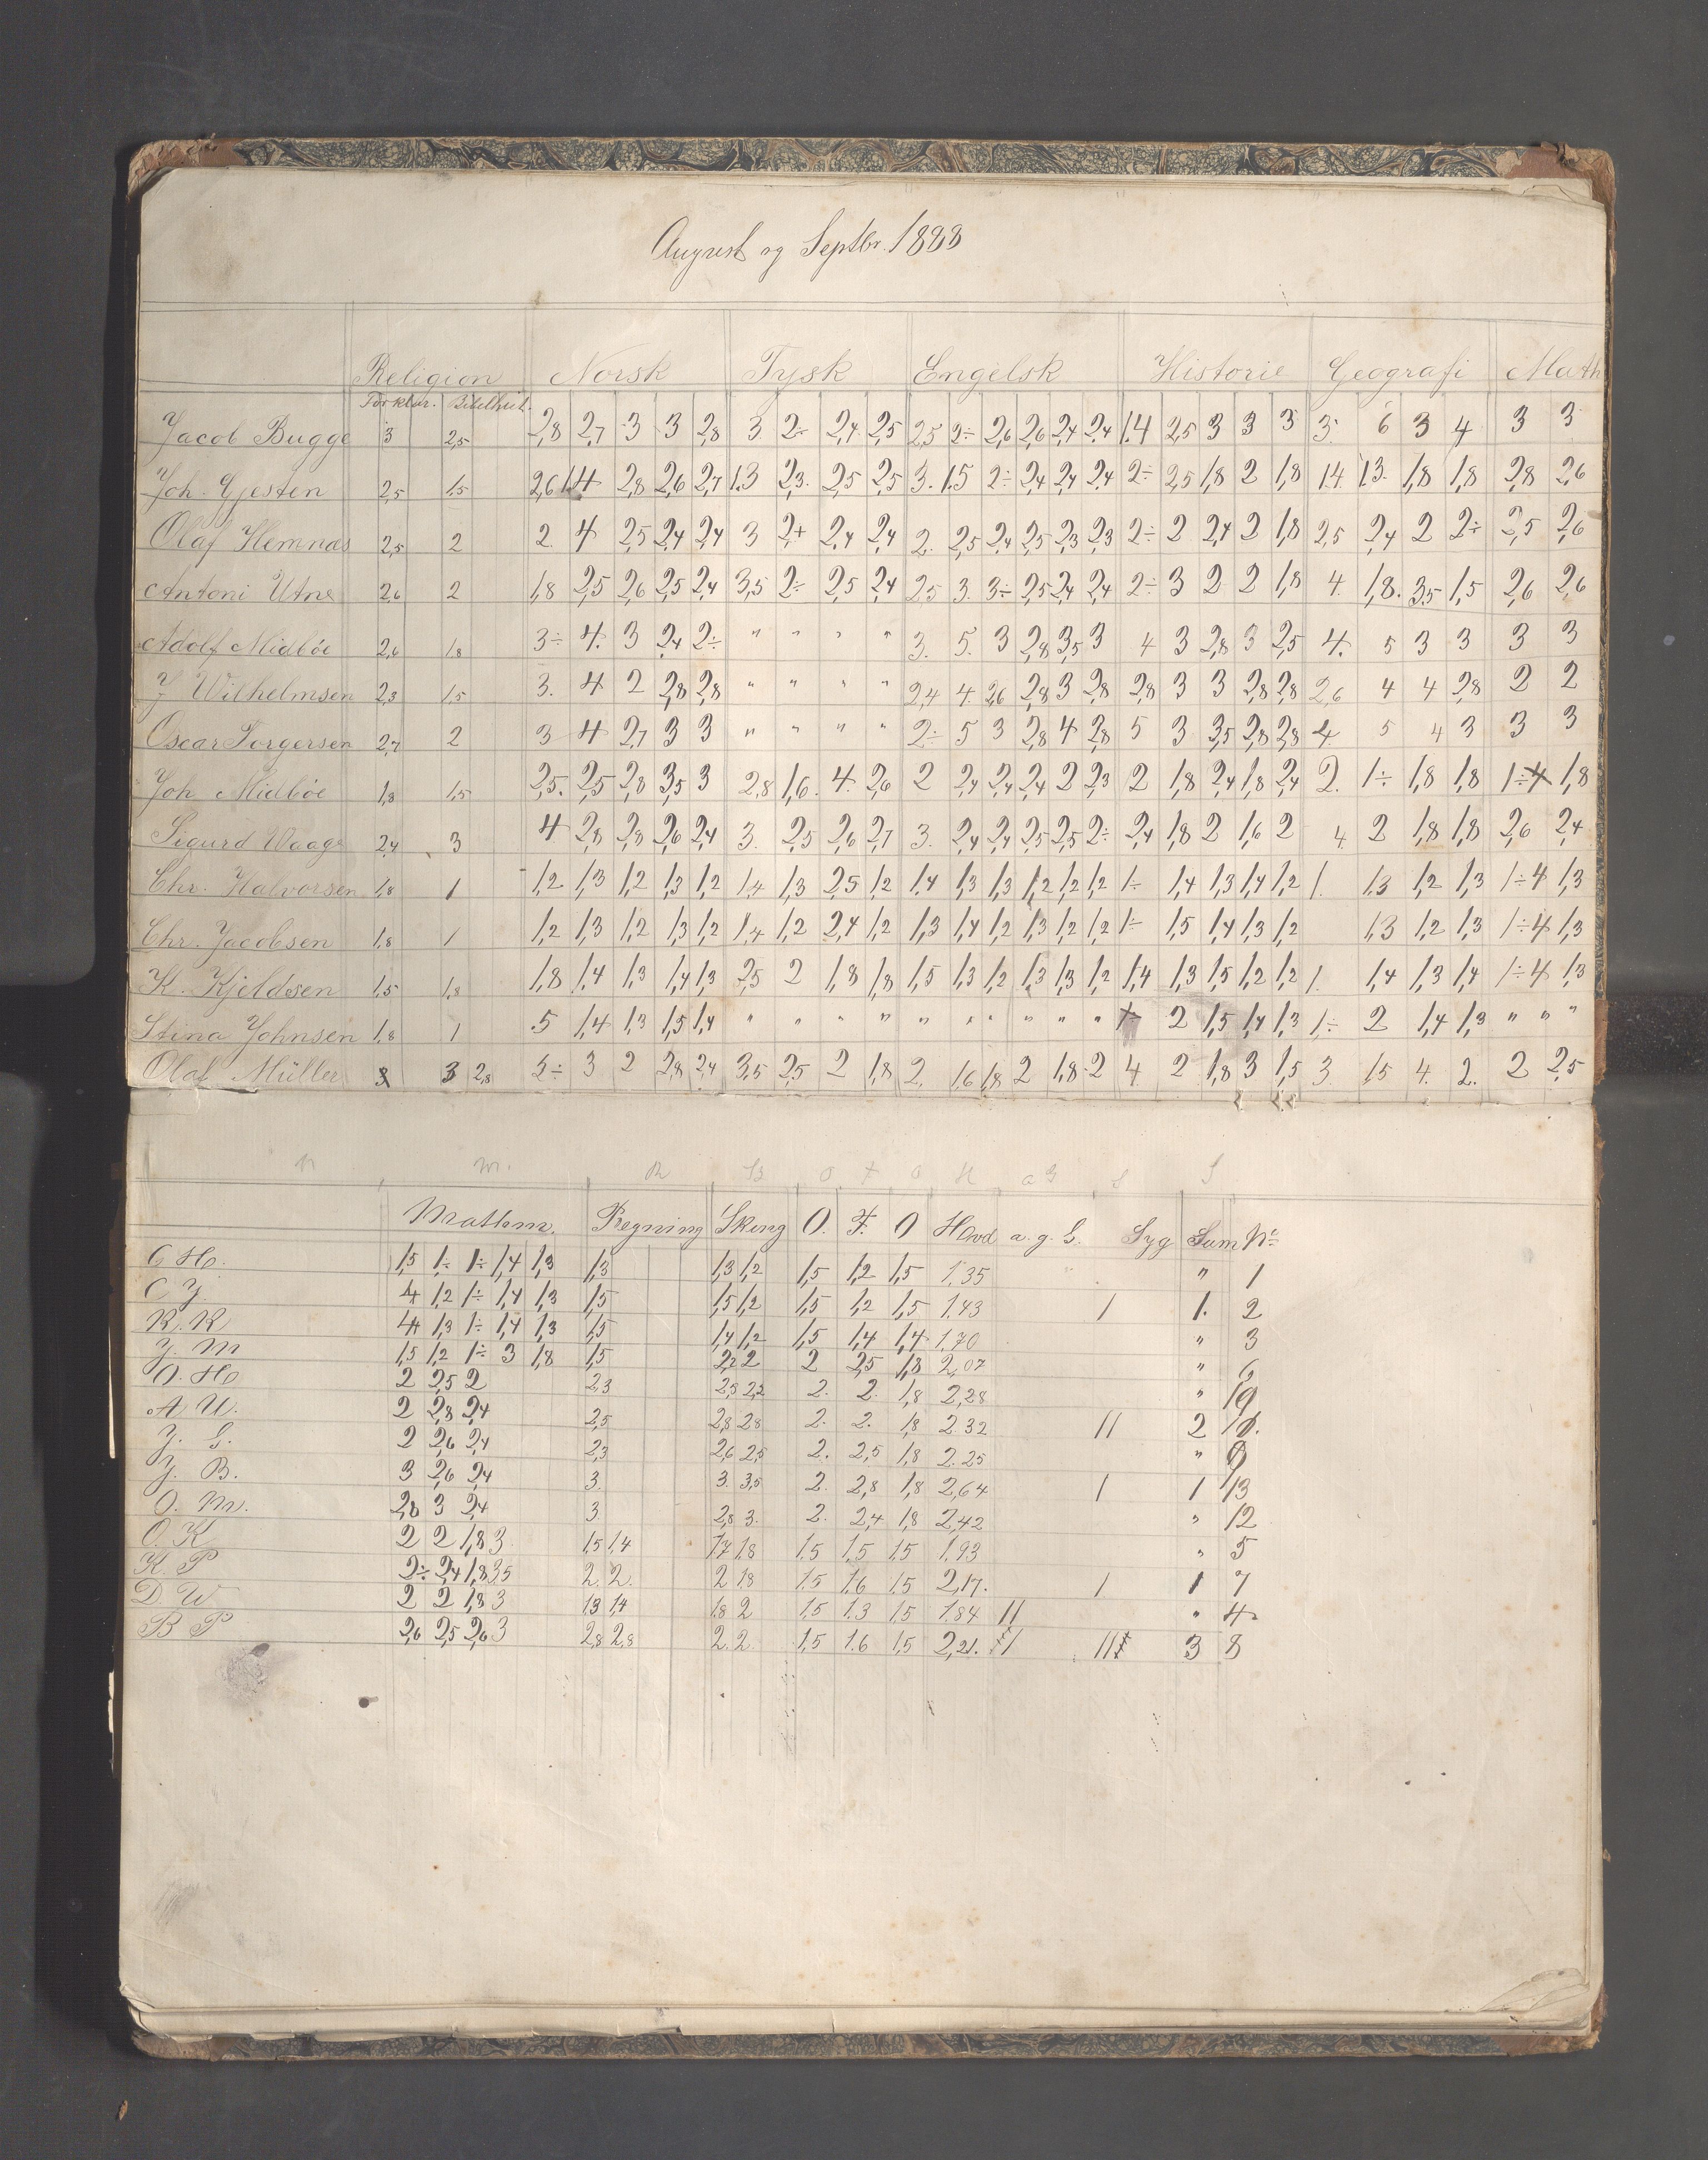 August og Septbr. 1888
Religion Norsk Tysk Engelsk Historie Geografi Math
Forklar. Bibelhist.
Jacob Bugge 3 2,5 2,8 2,7 3 3 2,8 3 2÷ 2,4 2,5 2,5 2÷ 2,6 2,6 2,4 2,4 1,4 2,5 3 3 3 3. 6 3 4 3 3
Joh. Gjesten 2,5 1,5 2,6 1,4 2,8 2,6 2,7 1,3 2,3. 2,5 2,5 3. 1.5 2÷ 2,4 2,4 2,4 2÷ 2,5 1,8 2 1,8 1.4 1.3. 1,8 1,8 2,8 2,6
Olaf Hemnæs 2,5 2 2. 4 2,5 2,4 2,4 3 2+ 2,4 2,4 2. 2,5 2,4 2,5 2,3 2,3 2÷ 2 2,4 2 1,8 2,5 2,4 2 2÷ 2,5 2,6
Antoni Utne 2,6 2 1,8 2,5 2,6 2,5 2,4 3,5 2÷ 2,5 2,4 2,5 3. 3÷ 2,5 2,4 2,4 2÷ 3 2 2 1,8 4. 1,8. 3,5 1,5 2,6 2,6
Adolf Midbøe 2,6 1,8 3÷ 4. 3 2,4 2÷ " " " " 3. 5. 3 2,8 3,5 3 4 3 2,8 3 2,5 4. 5 3 3 3 3
J Wilhelmsen 2,3 1,5 3. 4 2 2,8 2,8 " " " " 2,4 4. 2,6 2,8 3 2,8 2,8 3 3 2,8 2,8 2,6 4 4 2,8 2 2
Oscar Torgersen 2,7 2 3 4 2,7 3 3 " " " " 2÷ 5 3 2,8 4 2,8 5 3 3,5 2,8 2,8 4. 5 4 3 3 3
Joh Midbøe 1,8 1,5 2,5. 2,5 2,8 3,5 3 2,8 1,6. 4. 2,6 2 2,4 2,4 2,4 2 2,3 2 1,8 2,4 1,8 2,4 2. 1÷ 1,8 1,8 1÷4 1,8
Sigurd Waage 2,4 3 4 2,8 2,8 2,6 2,4 3. 2,5 2,6 2,7 3. 2,4 2,4 2,5 2,5 2÷ 2,4 1,8 2 1,6 2 4. 2 1,8 1,8 2,6 2,4
Chr. Halvorsen 1,8 1 1,2 1,3 1,2 1,3 1,2 1,4 1,3 2,5 1,2 1,4 1,3 1,3 1,2 1,2 1,2 1÷ 1,4 1,3 1,4 1,2 1. 1,3 1,2 1,3 1÷4 1,3
Chr. Jacobsen 1,8 1 1,2 1,3 1,2 1,3 1,2 1,4 1,2 2,4 1,2 1,3 1,4 1,2 1,3 1,2 1,2 1÷ 1,5 1,4 1,3 1,2 1,3 1,2 1,3 1÷4 1,3
K. Kjeldsen 1,5 1,8 1,8 1,4 1,3 1,4 1,3 2,5 2 1,8 1,8 1,5 1,3 1,2 1,3 1,3 1,2 1,4 1,3 1,5 1,2 1,2 1. 1,4 1,3 1,4 1÷4 1,3
Stina Johnsen 1,8 1 .5 1,4 1,3 1,5 1,4 " " " " " " " " " " 1÷ 2 1,5 1,4 1,3 1÷ 2 1,4 1,3 " " "
Olaf Müller 3 3 2,8 3÷ 3 2 2,8 2,4 3,5 2,5 2 1,8 2. 1,6 1,8 2 1,8 2 4 2 1,8 3 1,5 3. 1,5 4. 2. 2 2,5
n m. R S O. F O H a G S S
Mathm. Regning Skriv O. F. O Hoved a. g. G. Syg Sum No
C H. 1,5 1÷ 1÷ 1,4 1,3 1,3 1,3 1,2 1,5 1,2 1,5 1.35 " 1
C J. 4 1,2 1÷ 1,4 1,3 1,5 1,5 1,2 1,5 1,2 1,5 1.43 1 1. 2
K. K 4 1,3 1÷ 1,4 1,3 1,5 1,4 1,2 1,5 1,4 1,4 1.70 " 3
J. M 1,5 1,2 1÷ 3 1,8 1,5 2,2 2 2 2,5 1,8 2,07 " 6
O. H 2 2,5 2 2,3 2,3 2,2 2. 2. 1,8 2,28 " 10
A U. 2 2,8 2,4 2,5 2,8 2,8 2. 2. 1,8 2.32 11 2 11.
J. G. 2 2,6 2,4 2,3 2,6 2,5 2. 2,5 1,8 2.25 " 9
J. B. 3 2,6 2,4 3. 3. 3,5 2. 2,8 1,8 2,64 1 1 13
O. M. 2,8 3 2,4 3 2,8 3. 2. 2,4 1,8 2,42 " 12
O. K 2 2 1,8 3 1,5 1,4 1,7 1,8 1.5 1,5 1.5 1.93 " 5
K. P 2÷ 2,4 1,8 3,5 2. 2. 2 1,8 1.5 1.6 1.5 2,17. 1 1 7
D. W 2 2 1,8 3 1,3 1,4 1,8 2 1,5 1.3 1.5 1.84 11 " 4
B P 2,6 2,5 2,6 3 2,8 2,8 2 2 1,5 1.6 1,5 2,21. 3 8